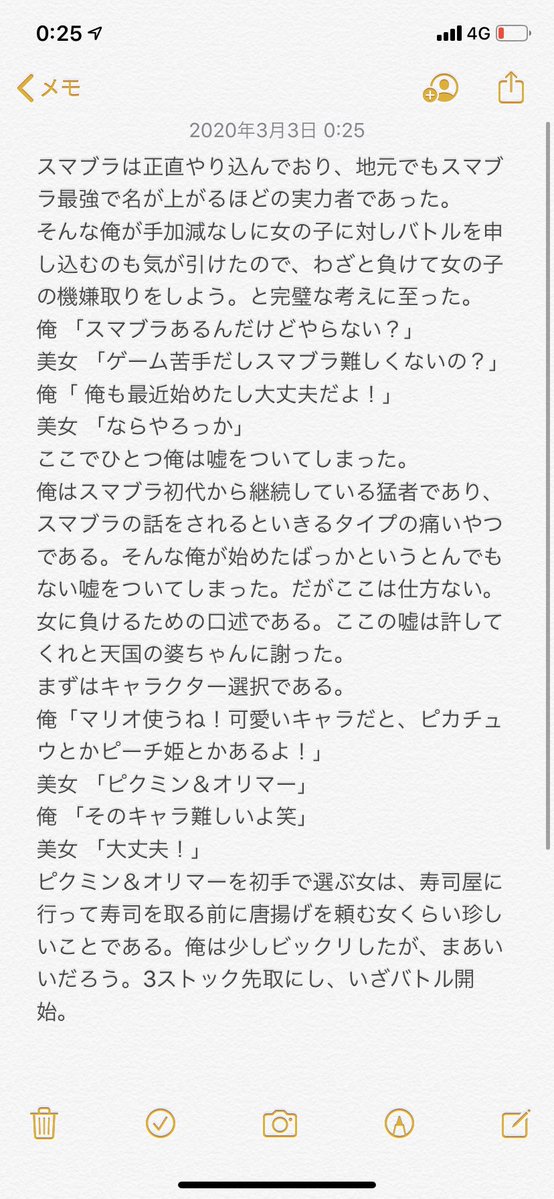 0:25
4G
メモ
2020年3月3日 0:25
スマブラは正直やり込んでおり、地元でもスマブ
ラ最強で名が上がるほどの実力者であった。
そんな俺が手加減なしに女の子に対しバトルを申
し込むのも気が引けたので、わざと負けて女の子
の機嫌取りをしよう。と完璧な考えに至った。
俺 「スマブラあるんだけどやらない？」
美女 「ゲーム苦手だしスマブラ難しくないの？」
俺「 俺も最近始めたし大丈夫だよ！」
美女 「ならやろっか」
ここでひとつ俺は嘘をついてしまった。
俺はスマブラ初代から継続している猛者であり、
スマブラの話をされるといきるタイプの痛いやつ
である。そんな俺が始めたばっかというとんでも
ない嘘をついてしまった。だがここは仕方ない。
女に負けるための口述である。ここの嘘は許して
くれと天国の婆ちゃんに謝った。
まずはキャラクター選択である。
俺「マリオ使うね！可愛いキャラだと、ピカチュ
ウとかピーチ姫とかあるよ！」
美女 「ピクミン＆オリマー」
俺 「そのキャラ難しいよ笑」
美女 「大丈夫！」
ピクミン＆オリマーを初手で選ぶ女は、寿司屋に
行って寿司を取る前に唐揚げを頼む女くらい珍し
いことである。俺は少しビックリしたが、まあい
いだろう。3ストック先取にし、いざバトル開
始。